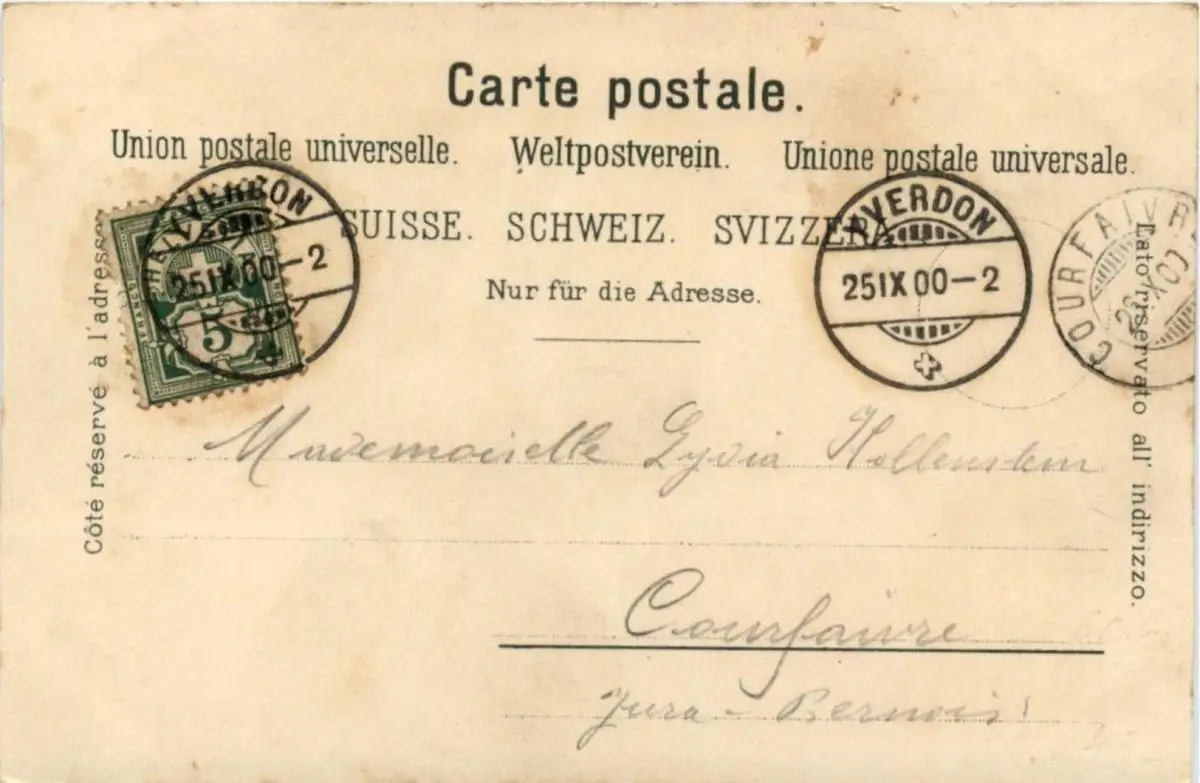 Carte postale.
Union postale universelle. Weltpostverein. Unione postale universale.
SUISSE. SCHWEIZ. SVIZZERA.
Nur für die Adresse.
Côté réservé à l'adresse
Lato riservato all' indirizzo.
YVERDON
25 IX 00-2
FRANCO
5
YVERDON
25 IX 00-2
COURFAIVRE
26 IX 00
Mademoiselle Lydia Hollenstein
Courfaivre
Jura-Bernois!